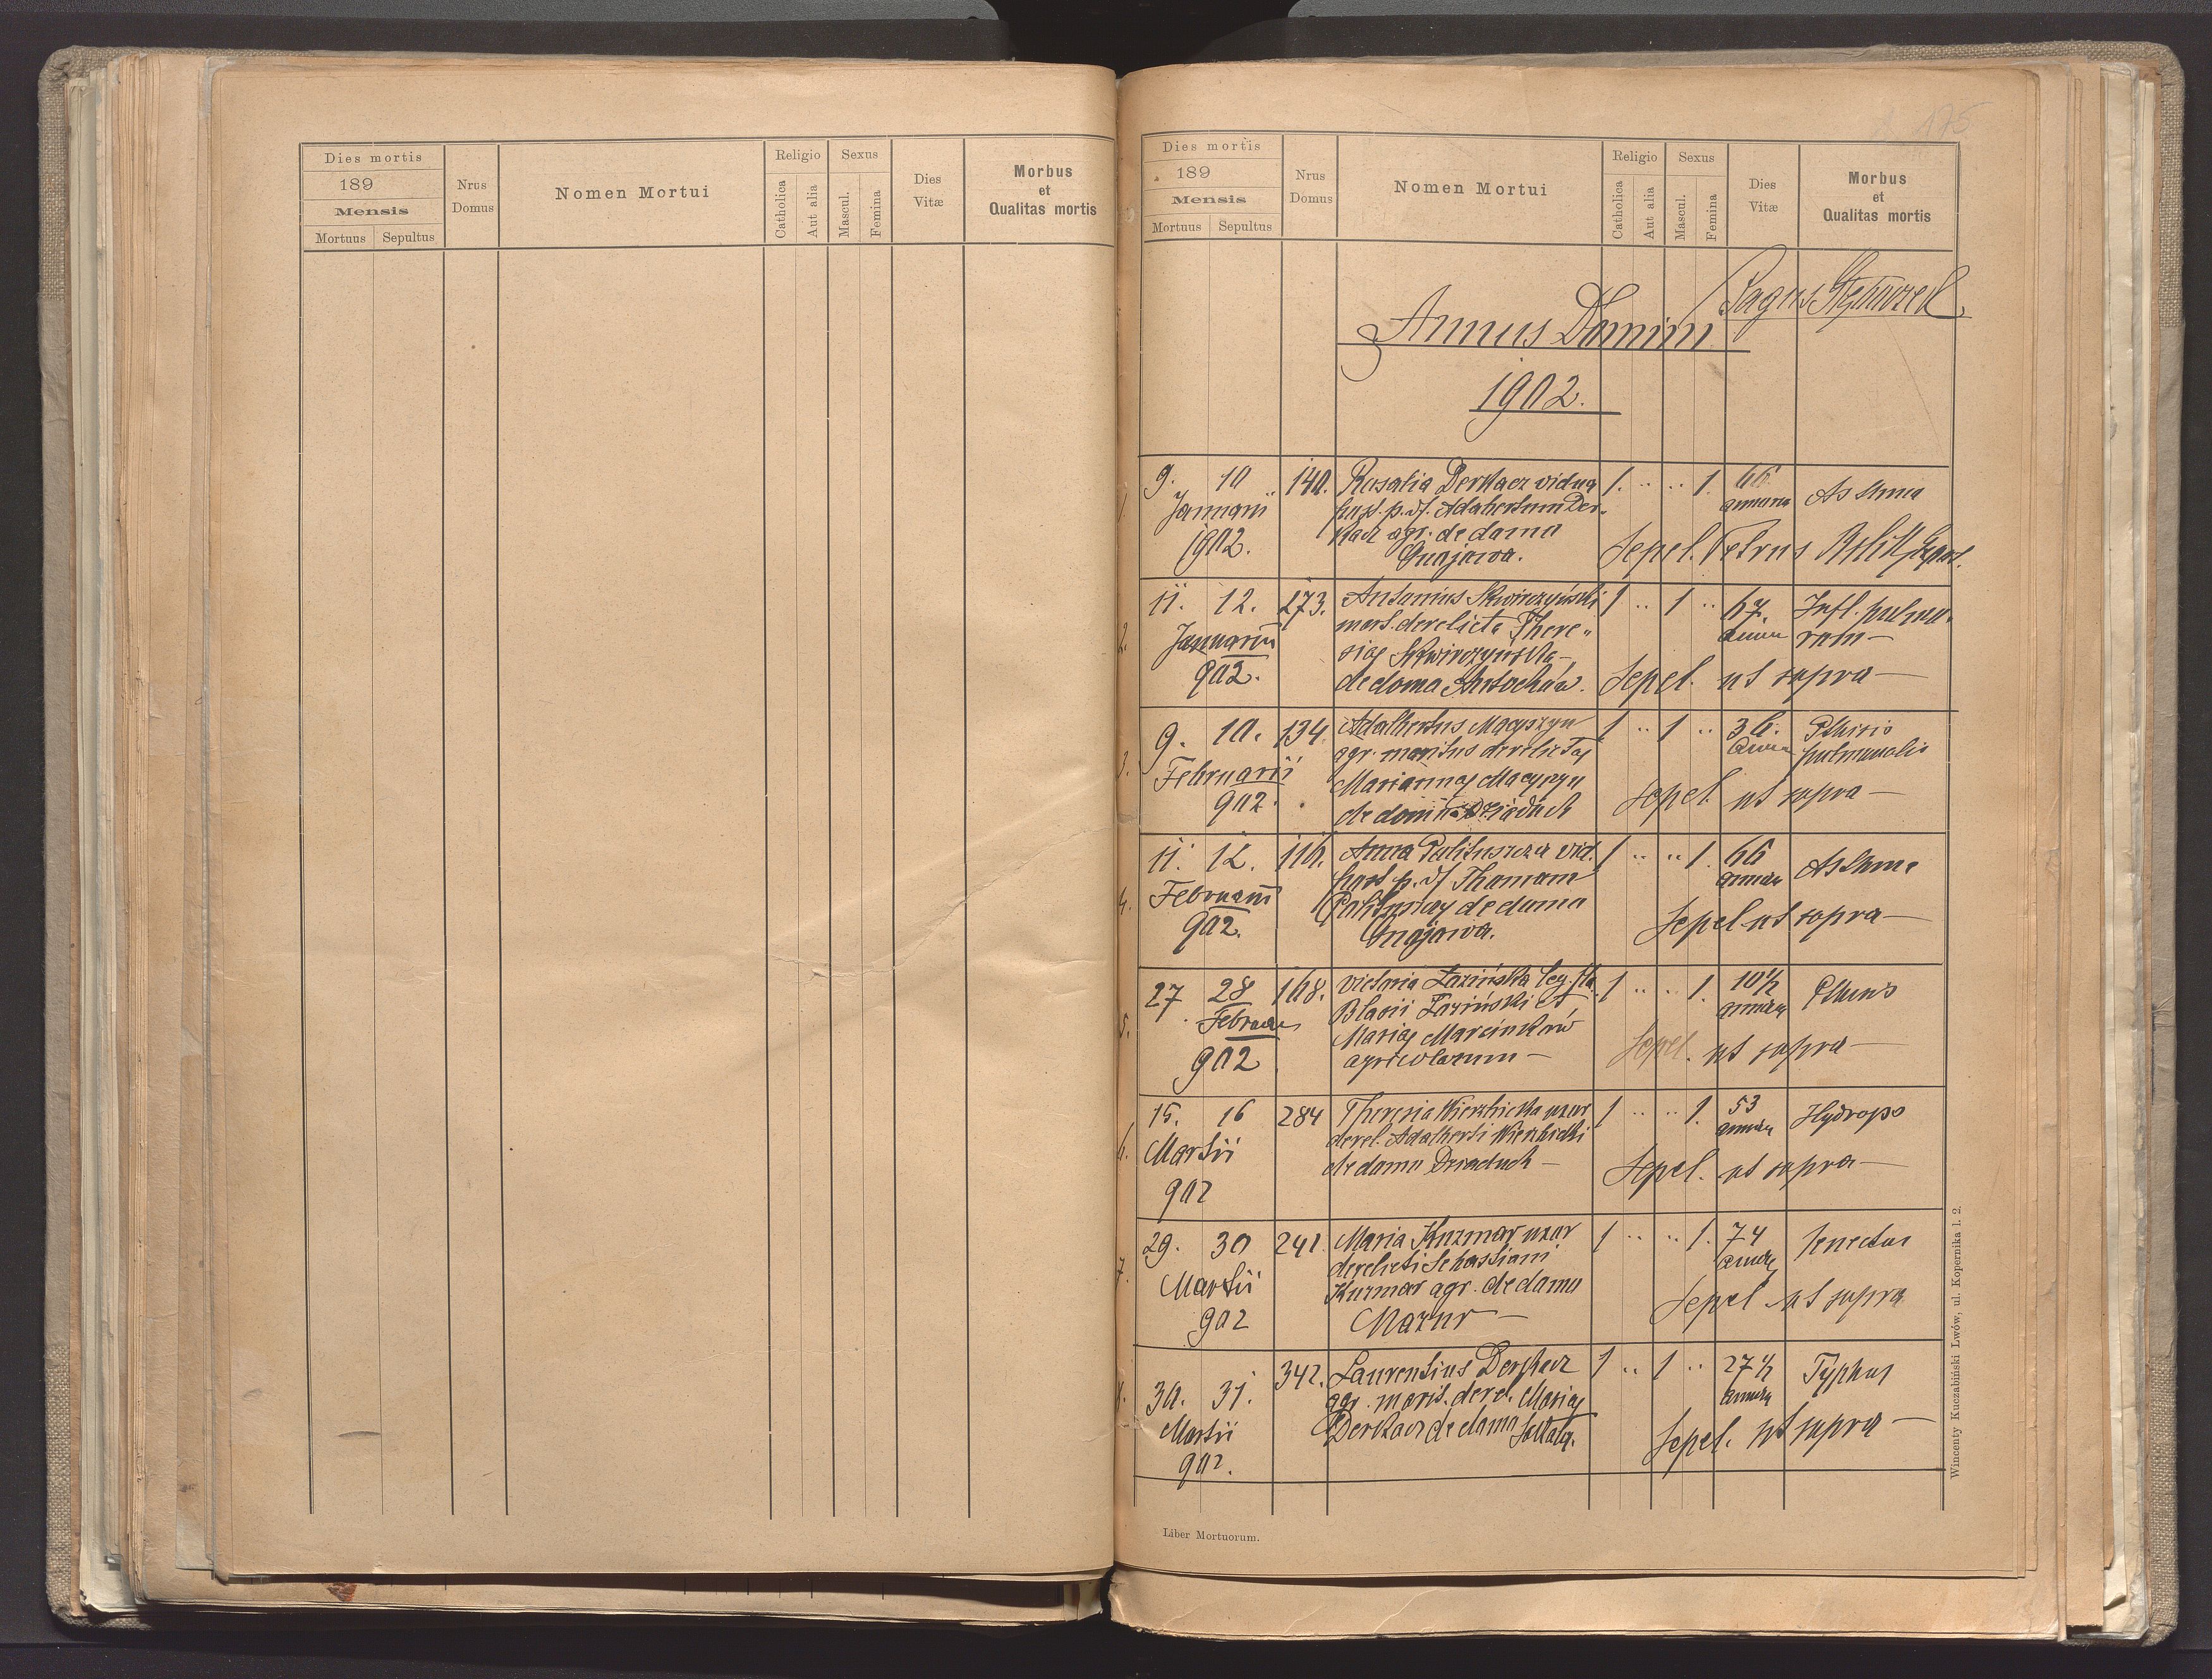 Dies mortis
189
Mensis
Mortuus Sepultus
Nrus Domus
Nomen Mortui
Religio
Catholica
Aut alia
Sexus
Mascul.
Femina
Dies Vitæ
Morbus et Qualitas mortis
175
Dies mortis
189
Mensis
Mortuus Sepultus
Nrus Domus
Nomen Mortui
Religio
Catholica
Aut alia
Sexus
Mascul.
Femina
Dies Vitæ
Morbus et Qualitas mortis
Pagus
Annus Domini
1902.
1 9. 10 140. Rosalia Derkacz vidua 1. .. .. 1. 66 Asthma
Januarii post. p. d. Adalbertum Der- annorum
1902. kacz agr. de domo
Gnojowa. Sepel. Petrus
2. 11. 12. 273. Antonius Skwirczyński 1 .. 1 .. 67 Infl. pulmo-
Januarii mart. derelicta There- annor rum —
902. siae Skwirczyńska
de domo Antochów. Sepel. ut supra —
3. 9. 10. 134 Adalbertus Macyszyn 1 .. 1 .. 36. Pthisis
Februarii agr. maritus derelictae annor pulmonalis
902. Mariannae Macyszyn
de domo Dziaduch Sepel. ut supra —
4. 11. 12. 116. Anna vid. 1 .. .. 1. 66 Asthma
Februarii post p. d. Thomam annor
902. de domo
Gnojowa. Sepel ut supra —
5. 27 28 168. Victoria Łozińska leg. fla. 1 .. .. 1. 10½ Pthisis
Februar Blasii Łoziński et annor
902 Mariae Marcinków
agricolarum — Sepel. ut supra —
6. 15. 16 284 Theresia Wierzbicka uxor 1 .. .. 1. 53 Hydrops
Martii derel. Adalberti Wierzbicki annor
902 de domo Dziaduch — Sepel. ut supra —
7. 29. 30 241. Maria Kuzmar uxor 1 .. .. 1. 74 Senectus
Martii derelicti Sebastiani annor
902 Kuzmar agr. de domo
Mazur — Sepel ut supra
8. 30. 31. 342. Laurentius Derkacz 1 .. 1 .. 27½ Typhus
Martii agr. marit. derel. Mariae annor
902. Derkacz de domo Sepel. ut supra —
Liber Mortuorum.
Wincenty Kuczabiński Lwów, ul. Kopernika l. 2.